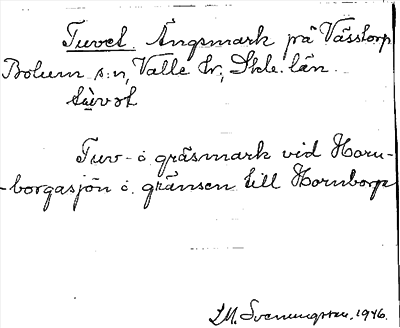 Tuvet Ängsmark på Västorp
Bolum s:n, Valle hr, Skbl. län.
tùvət
Tuv- o. gräsmark vid Horn-
-borgasjön o. gränsen till Hornborga
L.M. Svenungsson, 1946.